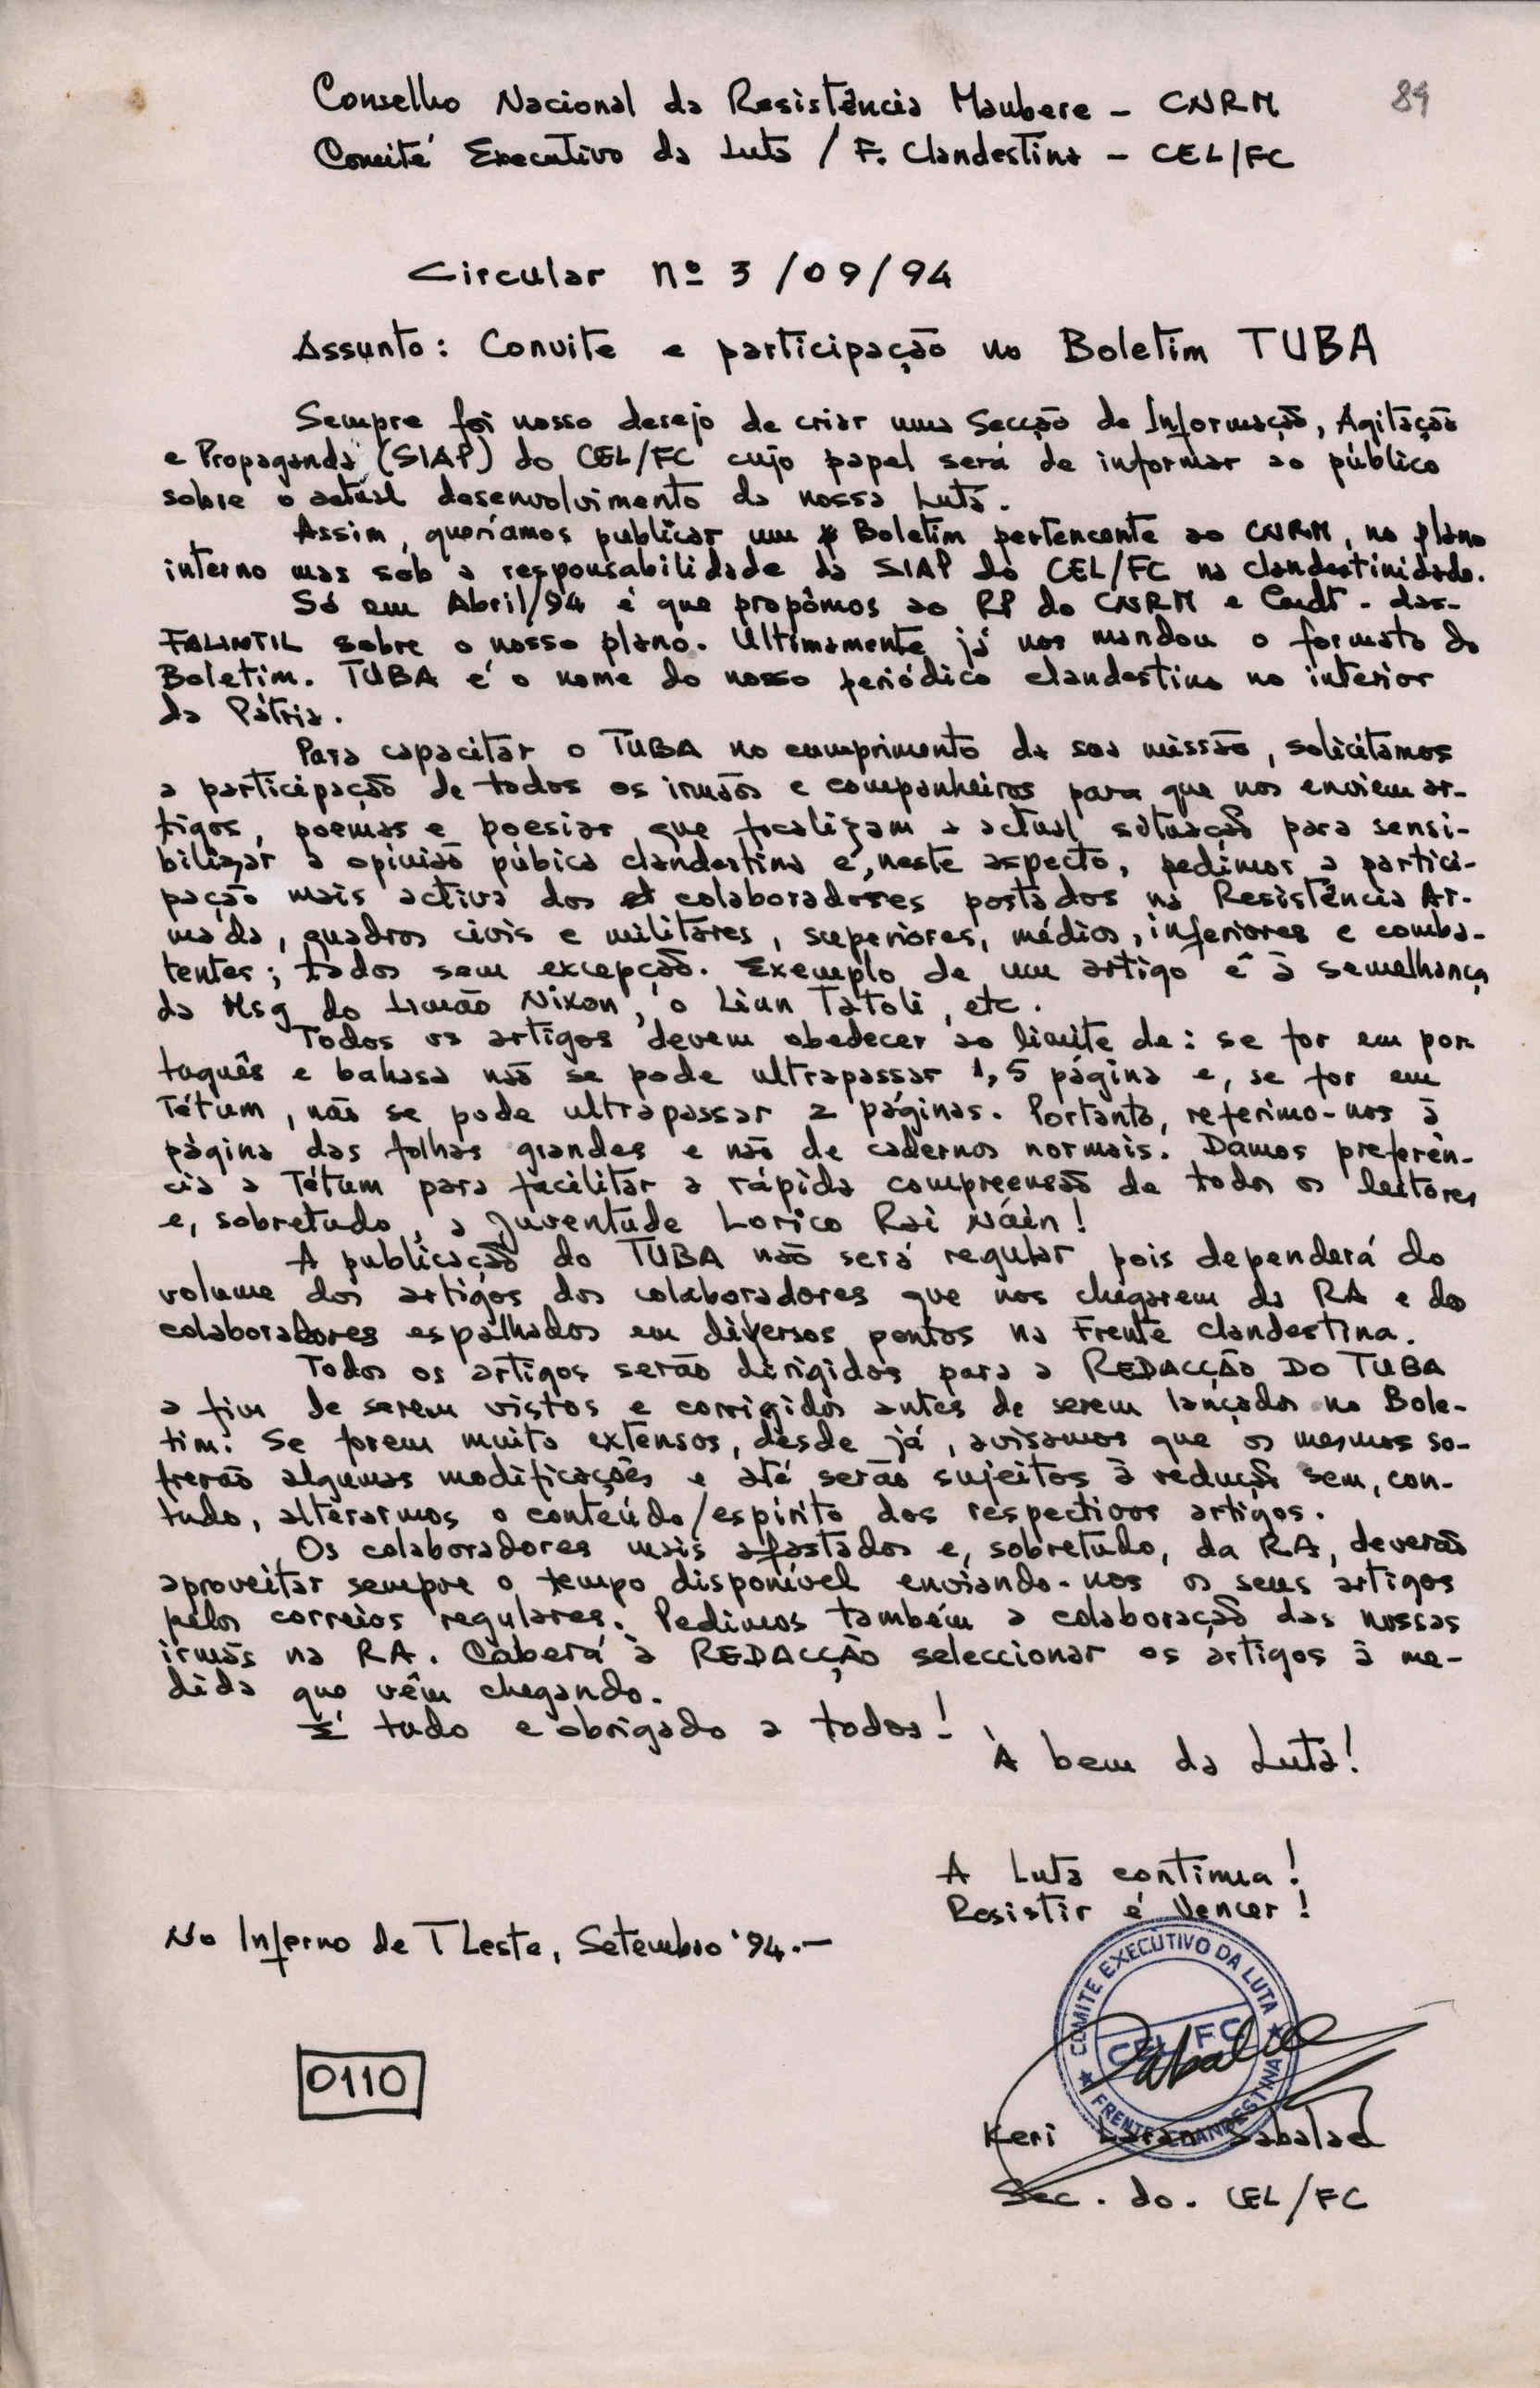 Conselho Nacional da Resistência Maubere - CNRM
84
Comité Executivo da Luta / F. Clandestina - CEL/FC
Circular nº 3 /09/94
Assunto: Convite e participação no Boletim TUBA
Sempre foi nosso desejo de criar uma Secção de Informação, Agitação
e Propaganda (SIAP) do CEL/FC cujo papel será de informar ao público
sobre o actual desenvolvimento da nossa Luta.
Assim, queríamos publicar um Boletim pertencente ao CNRM, no plano
interno mas sob a responsabilidade da SIAP do CEL/FC na clandestinidade.
Só em Abril/94 é que propômos ao RP do CNRM e Cmdt. das-
FALINTIL sobre o nosso plano. Ultimamente já nos mandou o formato do
Boletim. TUBA é o nome do nosso periódico clandestino no interior
da Pátria.
Para capacitar o TUBA no cumprimento da sua missão, solicitamos
a participação de todos os irmãos e companheiros para que nos enviem ar-
tigos, poemas e poesias que focalizam a actual situação para sensi-
bilizar a opinião púbica clandestina e, neste aspecto, pedimos a partici-
pação mais activa dos colaboradores postados na Resistência Ar-
mada, quadros civis e militares, superiores, médios, inferiores e comba-
tentes; todos sem excepção. Exemplo de um artigo é à semelhança
da Msg do Irmão Nixon, o Lian Tatoli, etc.
Todos os artigos devem obedecer ao limite de: se for em por
tuguês e bahasa não se pode ultrapassar 1,5 página e, se for em
Tétum, não se pode ultrapassar 2 páginas. Portanto, referimo-nos à
página das folhas grandes e não de cadernos normais. Damos preferên-
cia a Tétum para facilitar a rápida compreensão de todos os leitores
e, sobretudo, a Juventude Lorico Rai Náin!
A publicação do TUBA não será regular pois dependerá do
volume dos artigos dos colaboradores que nos chegarem da RA e do
colaboradores espalhados em diversos pontos na Frente clandestina.
Todos os artigos serão dirigidos para a REDACÇÃO DO TUBA
a fim de serem vistos e corrigidos antes de serem lançados no Bole-
tim. Se forem muito extensos, desde já, avisamos que os mesmos so-
frerão algumas modificações e até serão sujeitos à redução sem, con-
tudo, alterarmos o conteúdo/espírito dos respectivos artigos.
Os colaboradores mais afastados e, sobretudo, da RA, deverão
aproveitar sempre o tempo disponível enviando-nos os seus artigos
pelos correios regulares. Pedimos também a colaboração das nossas
irmãs na RA. Caberá à REDACÇÃO seleccionar os artigos à me-
dida que vêm chegando.
É tudo e obrigado a todos!
À bem da Luta!
A Luta continua!
Resistir é Vencer!
No Inferno de T Leste, Setembro '94.-
COMITE EXECUTIVO DA LUTA
CEL/FC
FRENTE CLANDESTINA
0110
Keri Laran Sabalae
Sec. do. CEL/FC